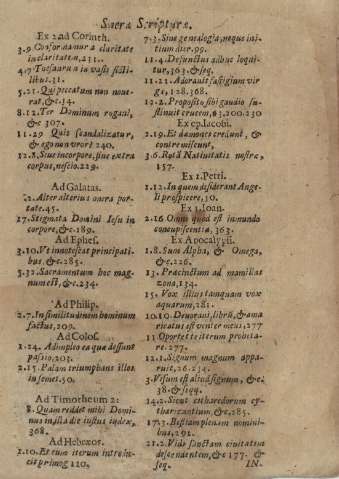 Sacræ Scripturæ.
Ex 2 ad Corinth.
3.9 Conformamur a claritate
in claritatem, 231.
4.7 Thesaurum in vasis ficti-
libus.31.
5.21. Qui peccatum non nove-
rat, &c.14.
8.12. Ter Dominum rogavi,
&c 307.
11.29 Quis scandalizatur,
& ego non vror? 240.
12.3. Siue in corpore, siue extra
corpus, nescio.219.
Ad Galatas.
2. Alter alterius onera por-
tate.45.
17. Stigmata Domini Iesu in
corpore, &c.189.
Ad Ephes.
3.10. Vt innotescat principati-
bus, &c.285.
3.32. Sacramentum hoc mag-
num est, &c.234.
Ad Philip.
2.7. In similitudinem hominum
factus, 209.
Ad Colos.
1.24. Adimpleo ea quæ desunt
passio, 203.
2.15. Palam triumphans illos
in semet.50.
Ad Timotheum 2:
8. Quam reddet mihi Domi-
nus in illa die iustus iudex,
368.
Ad Hebræos.
1.10. Et cum iterum introdu-
cit primog 120,
7.3. Sine genealogia, neque ini-
tium dier.99.
11.4. Defunctus adhuc loqui-
tur, 363. & seq.
11.21. Adorauit fastigium vir
gæ, 128.368.
12.2. Proposito sibi gaudio su-
stinuit crucem, 63, 200.230
Ex ep. Iacobi.
2.19. Et dæmones credunt, &
contremiscunt,
3.6. Rotã Natiuitatis nostræ,
157.
Ex 1. Petri.
1.12. In quem desiderant Ange-
li prospicere, 50.
Ex 1. Ioan.
2.16 Omne quod est in mundo
concupiscentia, 363.
Ex Apocalypsi.
1.8. Sum Alpha, & Omega,
&c.226.
13. Præcinctum ad mamillas
zona, 134.
15. Vox illius tamquam vox
aquarum, 281.
10.10. Deuoraui, librũ, & ama
ricatus est venter meus, 277
11 Oportet te iterum propheta-
re.277.
12.1. Signum magnum appa-
ruit, 26.234.
3. Visum est aliud signum, &c.
38. & seqq.
14.2. Sicut citharœdorum cy-
tharizantium, &c, 285.
17.3. Bestiam plenam nomini-
bus, 291.
21.2. Vidi sanctam ciuitatem
descendentem, &c 177. &
seq. IN.